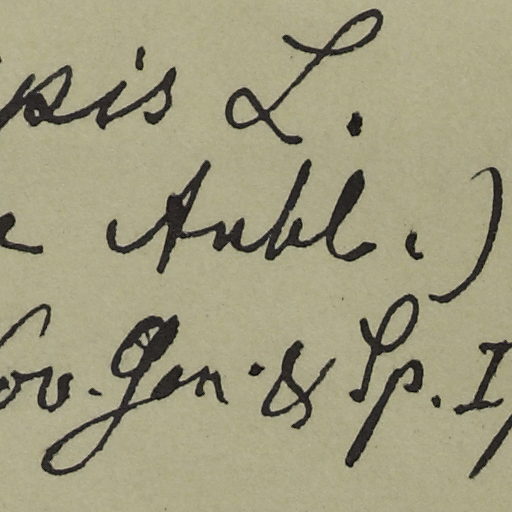 psis L.
Aubl.)
ov. Gen. & Sp. I